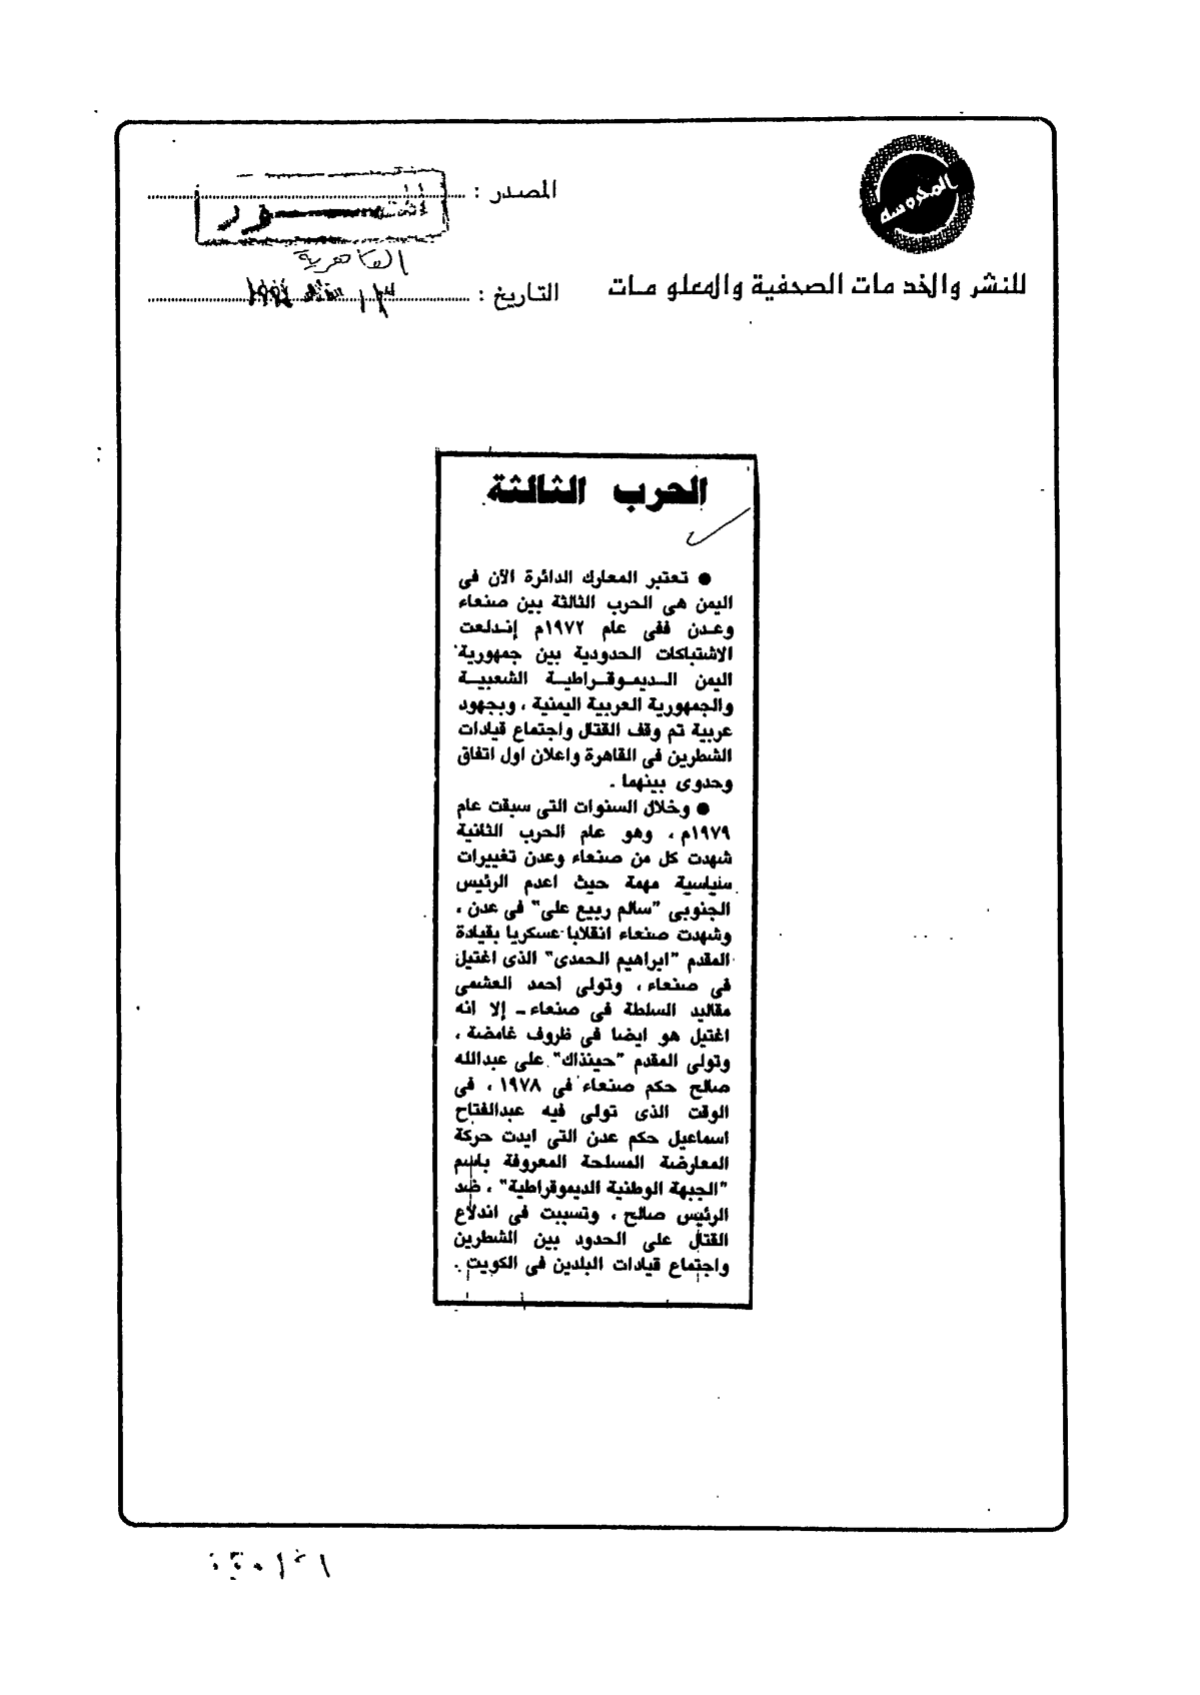 المحروسه
المصدر :
القاهرية
للنشر والخدمات الصحفية والمعلومات
التاريخ :
الحرب الثالثة
● تعتبر المعارك الدائرة الآن فى
اليمن هى الحرب الثالثة بين صنعاء
وعدن ففى عام ١٩٧٢م إندلعت
الاشتباكات الحدودية بين جمهورية
اليمن الديموقراطية الشعبية
والجمهورية العربية اليمنية ، وبجهود
عربية تم وقف القتال واجتماع قيادات
الشطرين فى القاهرة واعلان اول اتفاق
وحدوى بينهما .
● وخلال السنوات التى سبقت عام
١٩٧٩م ، وهو عام الحرب الثانية
شهدت كل من صنعاء وعدن تغييرات
سياسية مهمة حيث اعدم الرئيس
الجنوبى "سالم ربيع على" فى عدن ،
وشهدت صنعاء انقلابا عسكريا بقيادة
المقدم "ابراهيم الحمدى" الذى اغتيل
فى صنعاء ، وتولى أحمد الغشمى
مقاليد السلطة فى صنعاء - إلا انه
اغتيل هو ايضا فى ظروف غامضة ،
وتولى المقدم "حينذاك" على عبدالله
صالح حكم صنعاء فى ١٩٧٨ ، فى
الوقت الذى تولى فيه عبدالفتاح
اسماعيل حكم عدن التى ايدت حركة
المعارضة المسلحة المعروفة باسم
"الجبهة الوطنية الديموقراطية" ، ضد
الرئيس صالح ، وتسببت فى اندلاع
القتال على الحدود بين الشطرين
واجتماع قيادات البلدين فى الكويت .